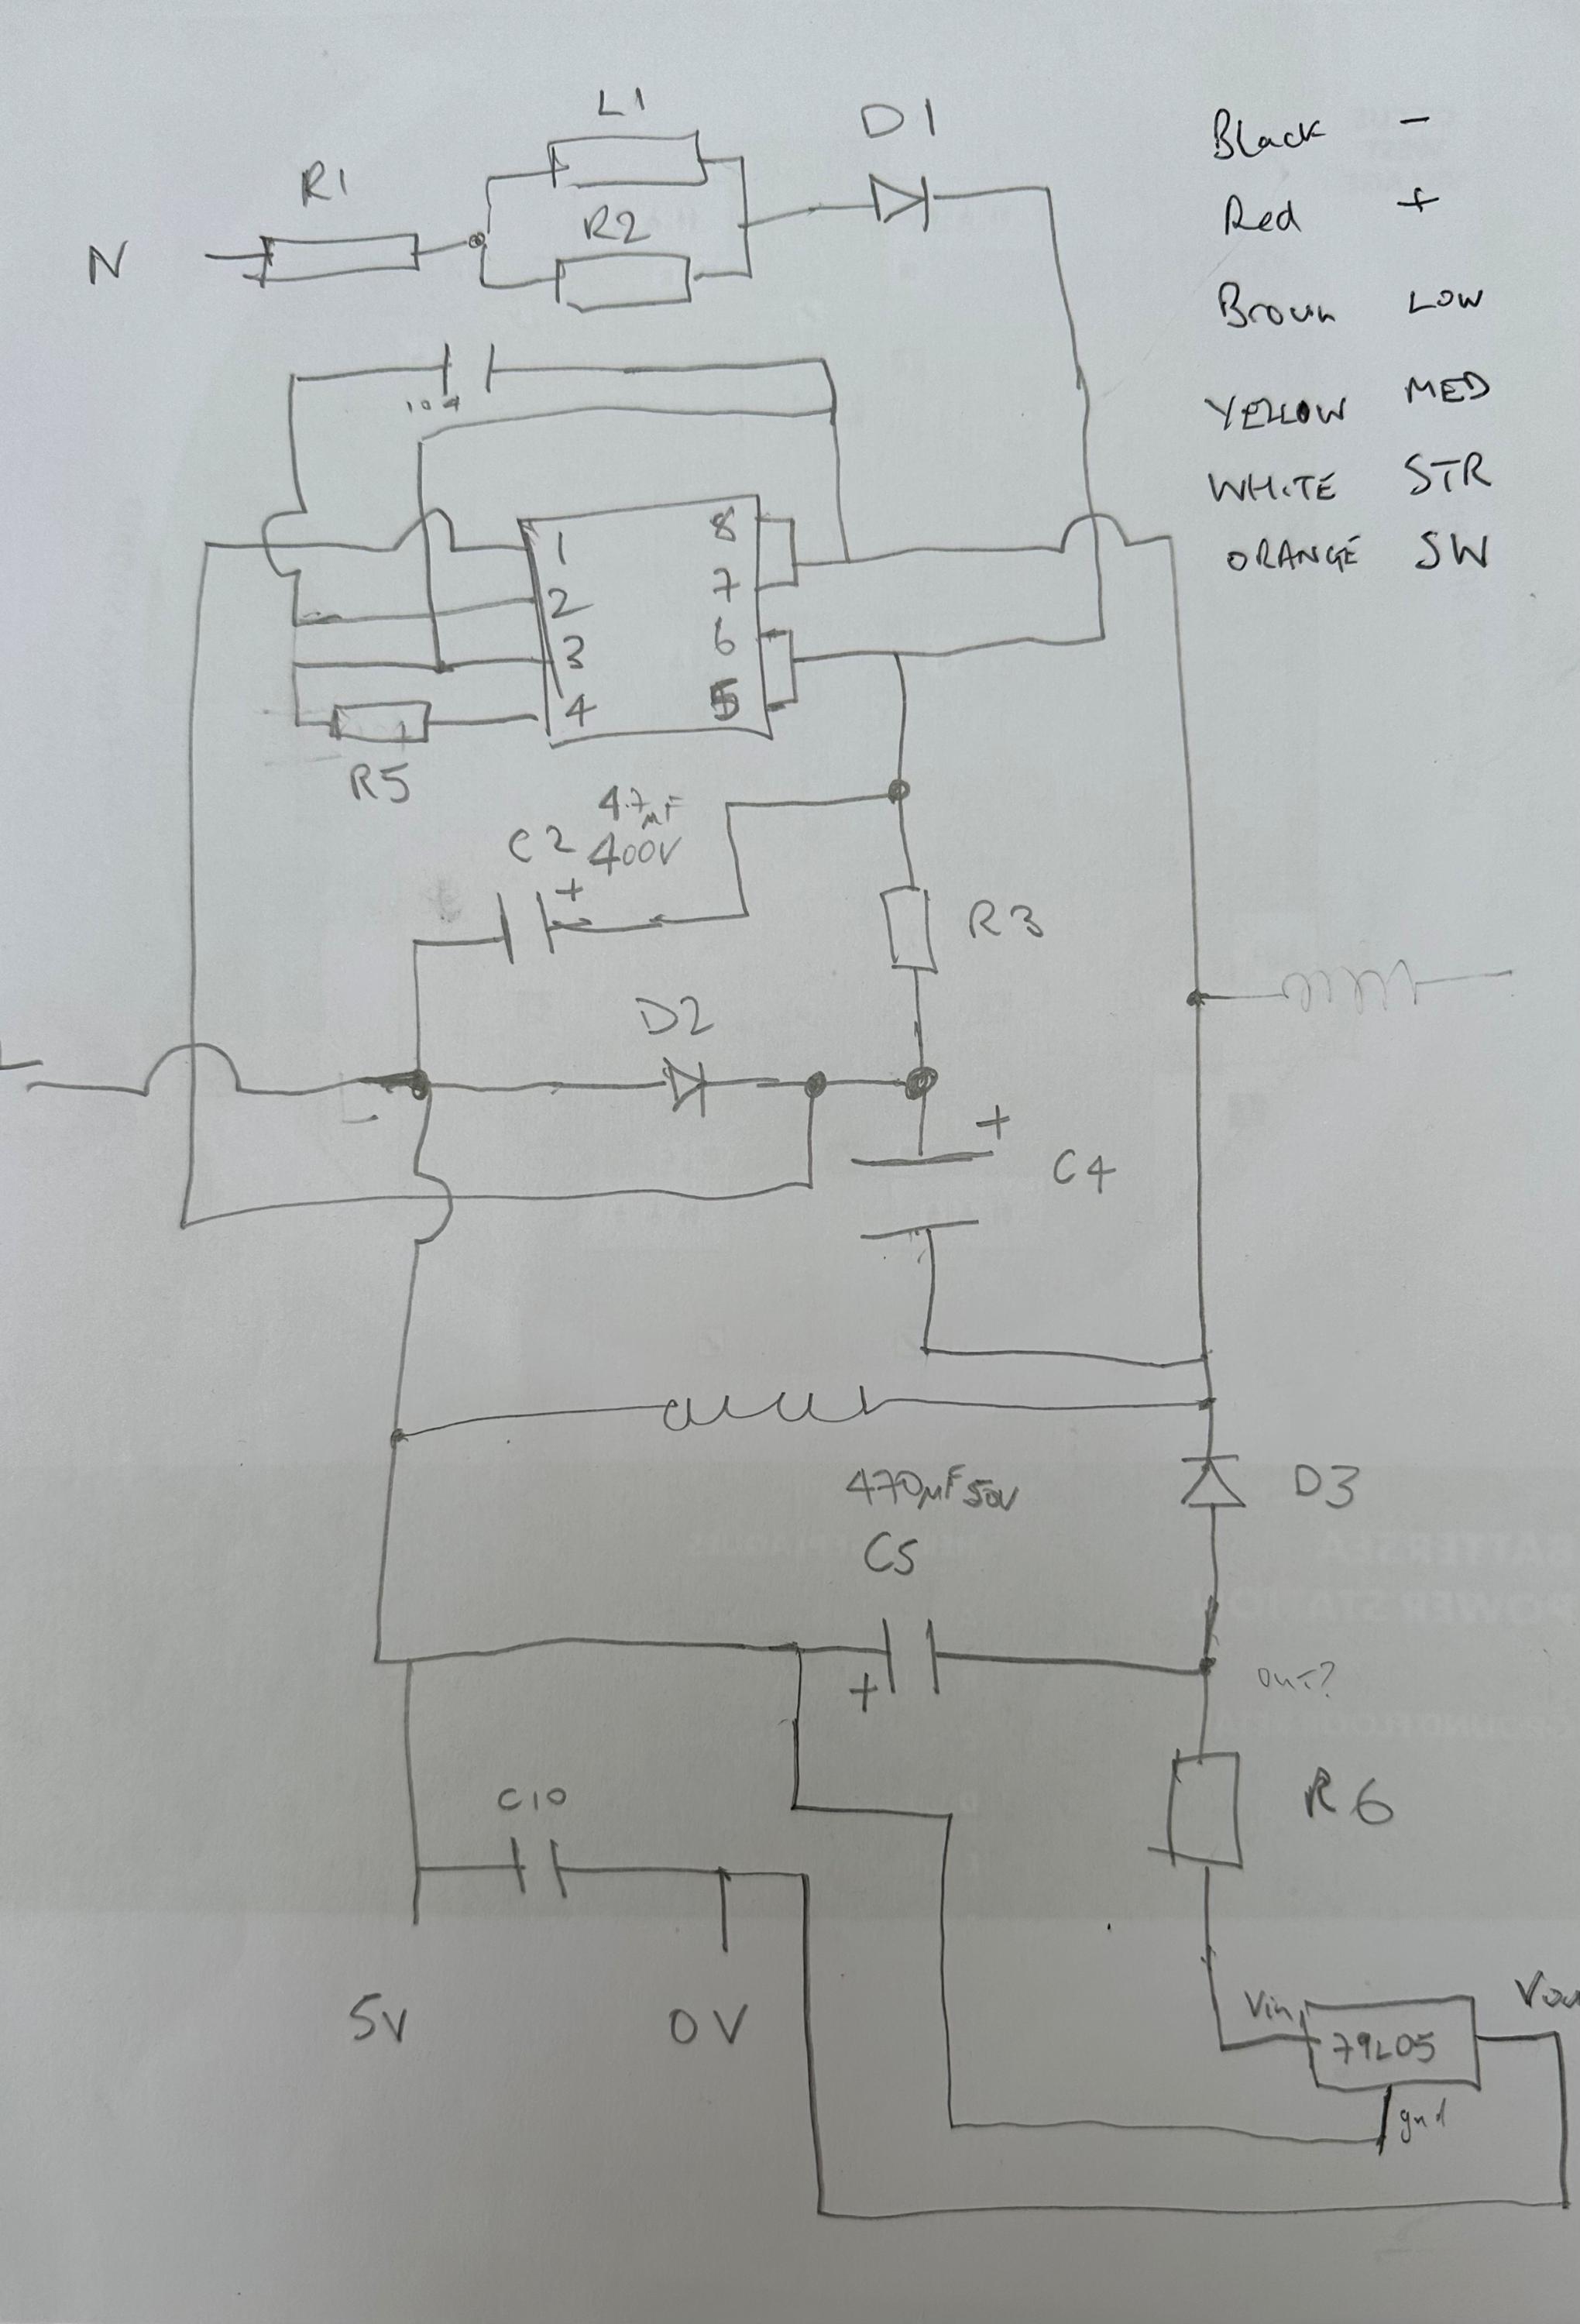 L1
D1
R1
R2
N
Black -
Red +
Brown LOW
YELLOW MED
WHITE STR
ORANGE SW
104
1
2
3
4
8
7
6
5
R5
4.7μF
C2 400V
+
R3
D2
L
+
C4
470μF 50V
C5
D3
+
OUT?
C10
R6
5V
0V
Vin
79L05
gnd